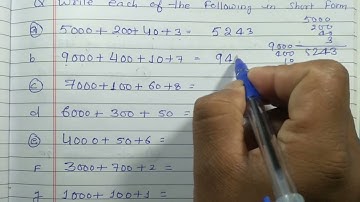 Q Write each of the following in Short Form
a 5000+200+40+3 = 5243
b 9000+400+10+7 = 94
c 7000+100+60+8 =
d 6000+300+50 =
e 4000+50+6 =
F 3000+700+2 =
g 1000+100+1 =
5000
200
40
3
5243
9000
400
10